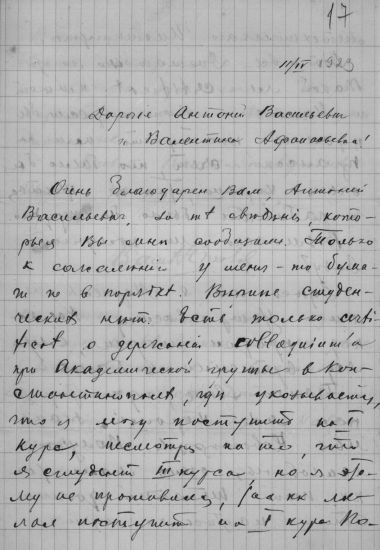 17
11/IV 1923
Дорогие Антоній Васильевич
и Валентина Афанасьевна!
Очень благодарен Вам, Антоній
Васильевич, за тѣ свѣдѣнія, кото-
рыя Вы мнѣ сообщили. Только
к сожалению у меня-то бума-
ги не в порядкѣ. Выписи студен-
ческия нѣт. Есть только certi-
ficat о держании colloquium'а
при Академической группѣ в Кон-
стантинополѣ, гдѣ указывается,
что я могу поступить на I
курс, несмотря на то, что
я студент III курса, но я это-
му не противился, так как же-
лал поступить на I курс По-